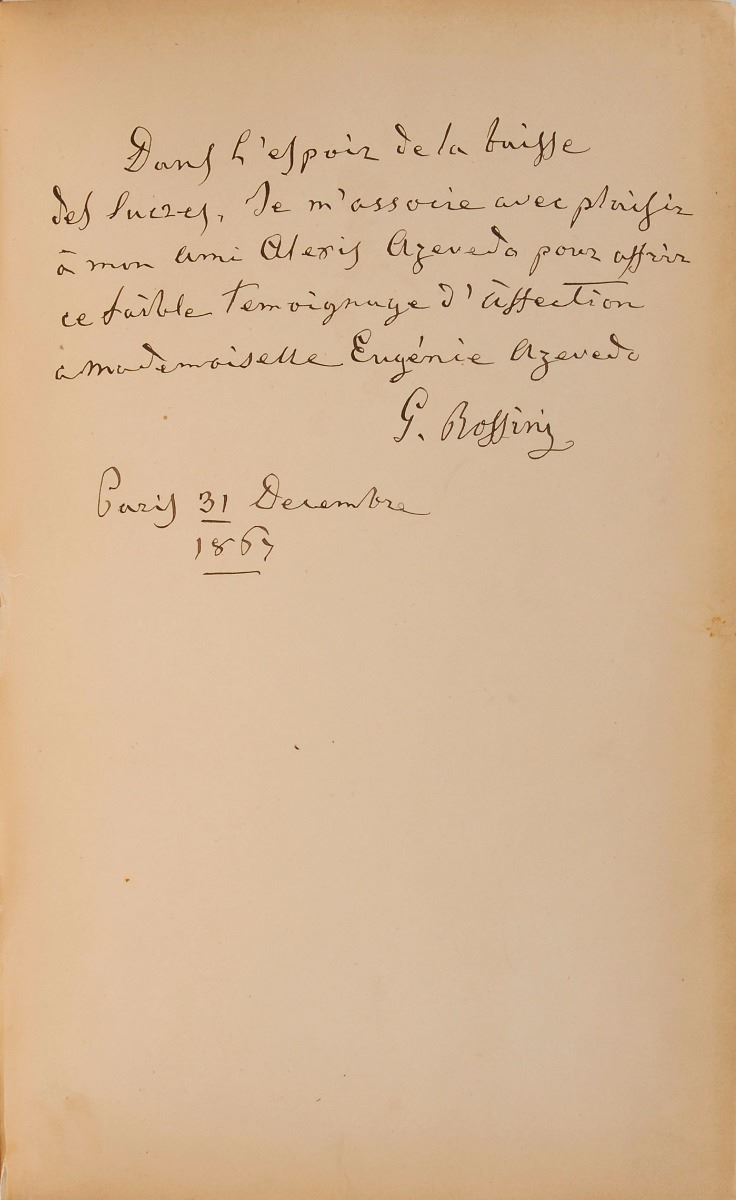 Dans l'espoir de la baisse
des sucres, Je m'associe avec plaisir
à mon ami Alexis Azevedo pour offrir
ce faible temoignage d'affection
a Mademoiselle Eugénie Azevedo
G. Rossini
Paris 31 Decembre
1867